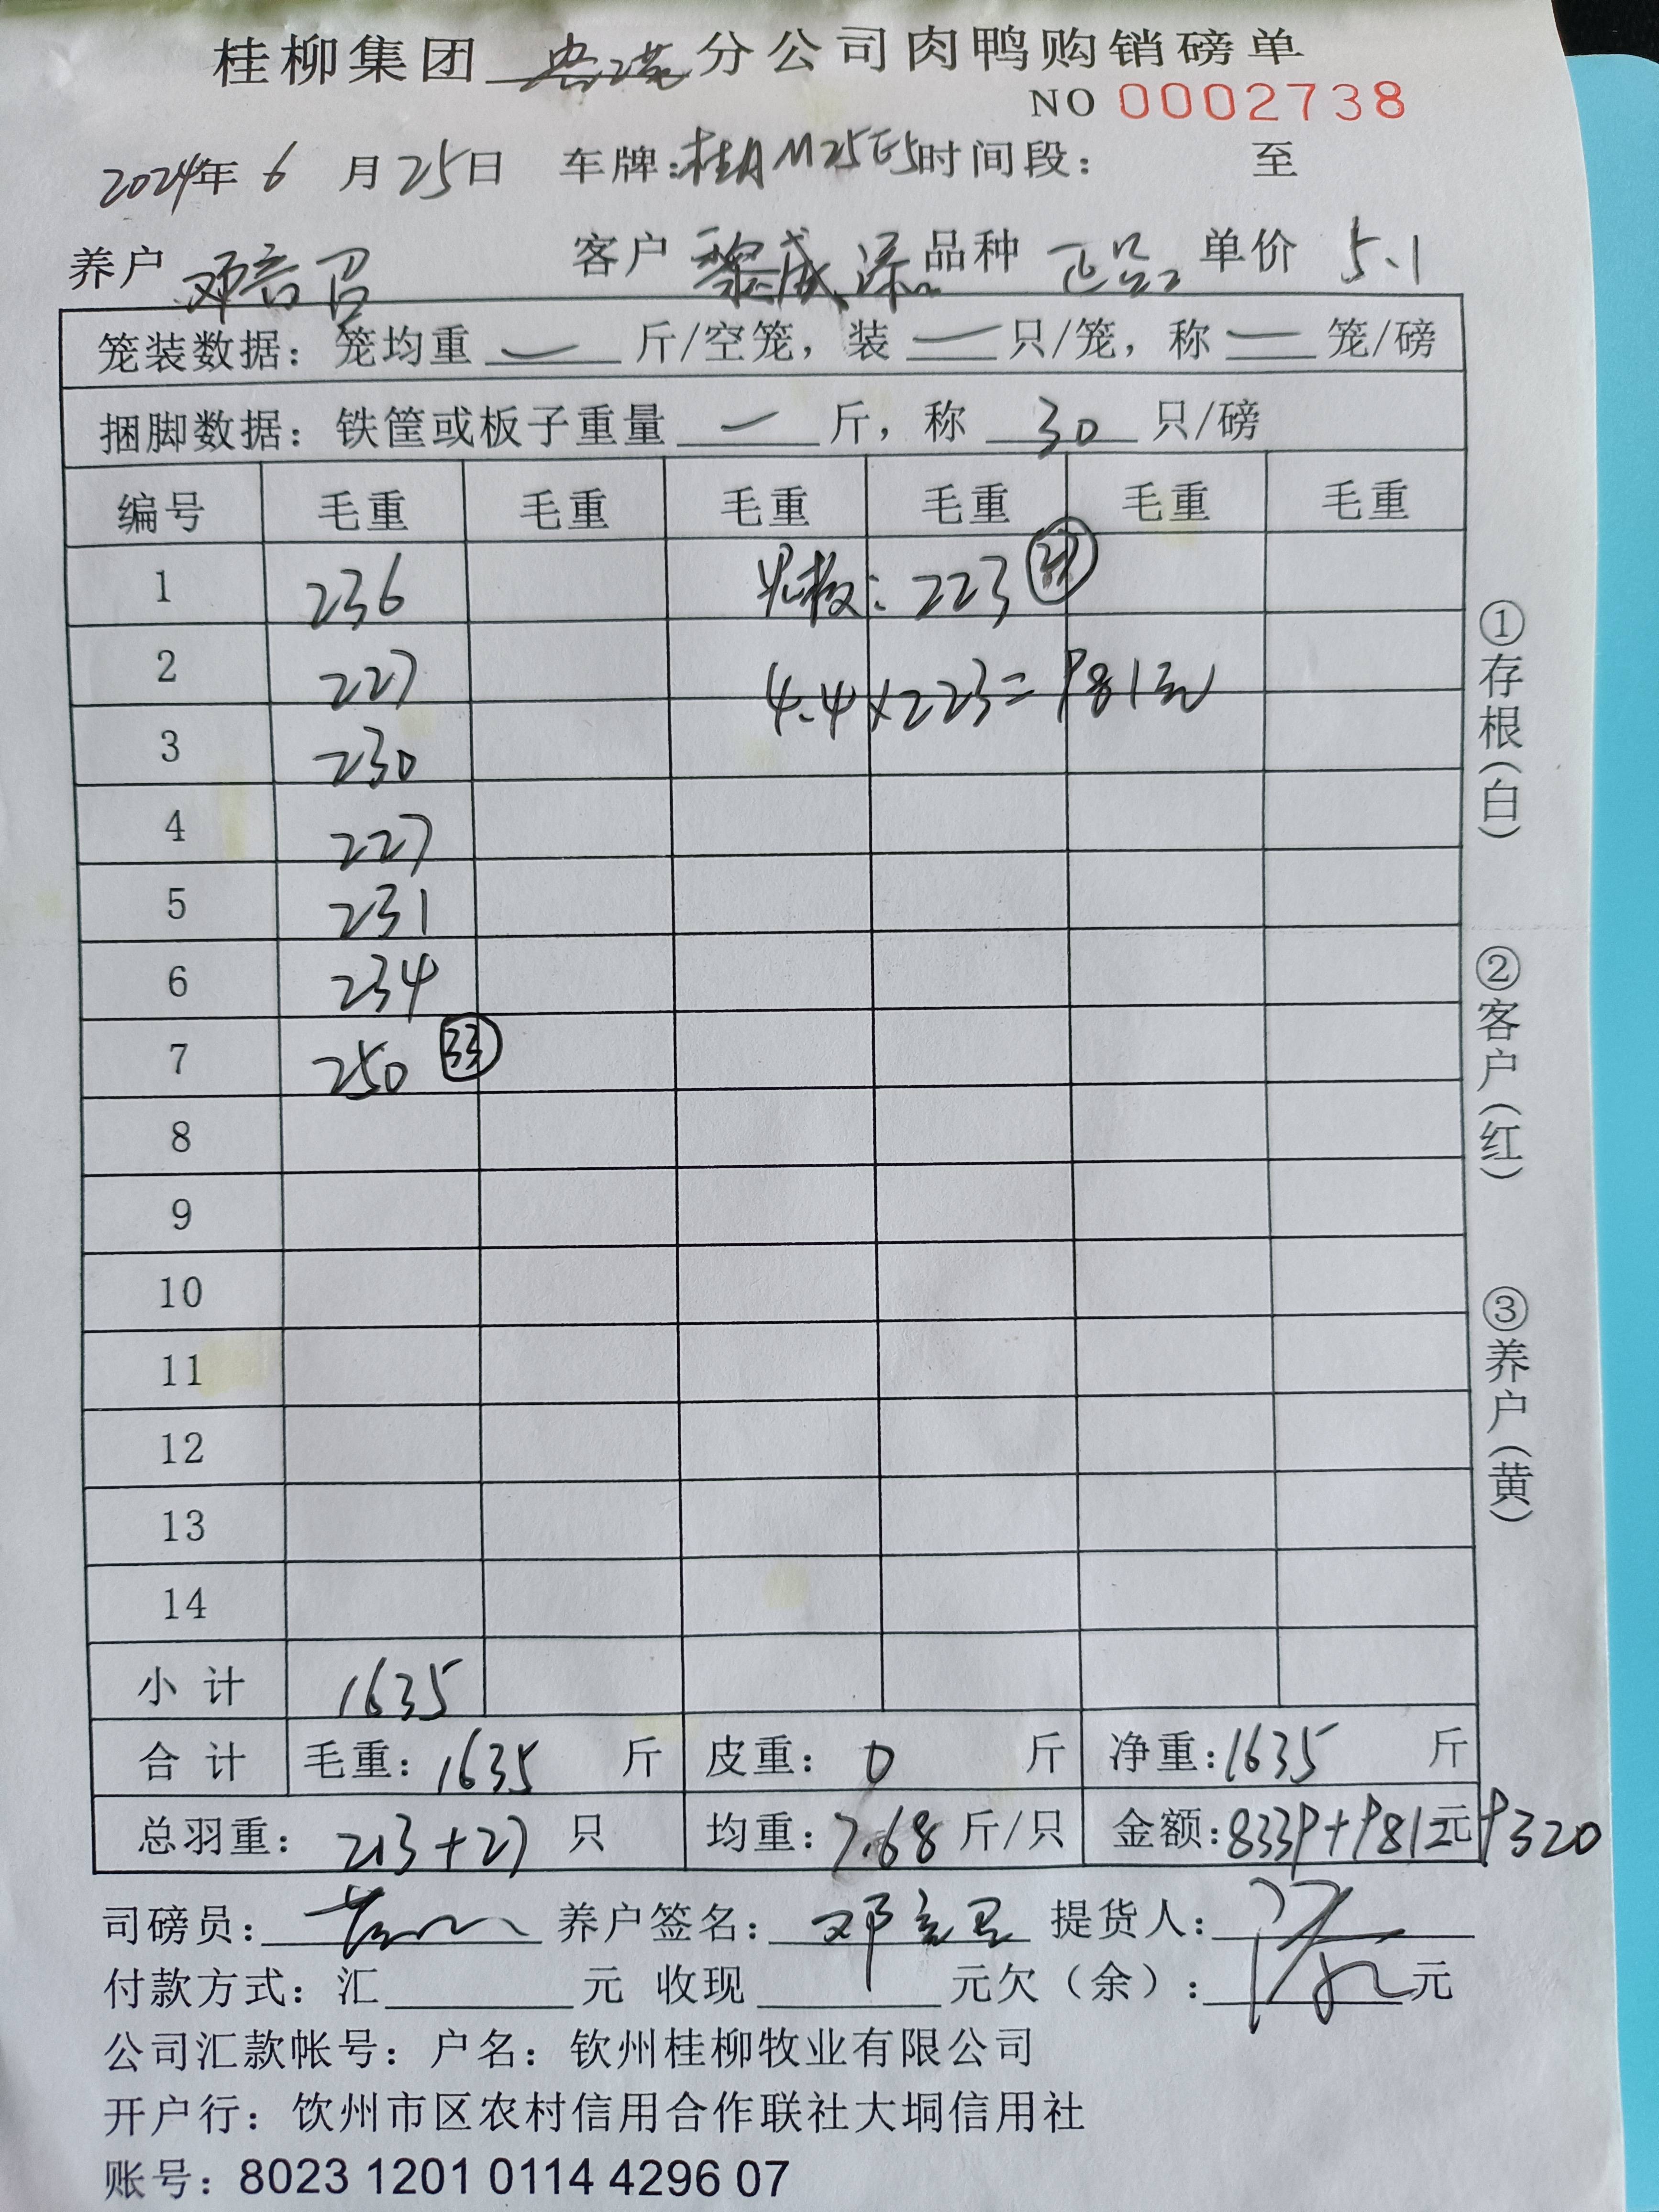 桂柳集团 分公司肉鸭购销磅单
NO 0002738
2024年 6 月 25日 车牌:桂A M25E5 时间段: 至
养户 邓 召 客户 黎威 品种 正品 单价 5.1
笼装数据: 笼均重 一 斤/空笼, 装 一 只/笼, 称 一 笼/磅
捆脚数据: 铁筐或板子重量 一 斤, 称 30 只/磅
编号 毛重 毛重 毛重 毛重 毛重 毛重
1 236 光板: 223
2 227 4.4×223=981元
3 230
4 227
5 231
6 234
7 250 33
8
9
10
11
12
13
14
小计 1635
合计 毛重: 1635 斤 皮重: 0 斤 净重: 1635 斤
总羽重: 213+27 只 均重: 7.68 斤/只 金额: 8339+981元 9320
司磅员: 养户签名: 邓 提货人:
付款方式: 汇 元 收现 元欠（余）: 元
公司汇款帐号: 户名: 钦州桂柳牧业有限公司
开户行: 饮州市区农村信用合作联社大垌信用社
账号: 8023 1201 0114 4296 07
①存根（白）
②客户（红）
③养户（黄）